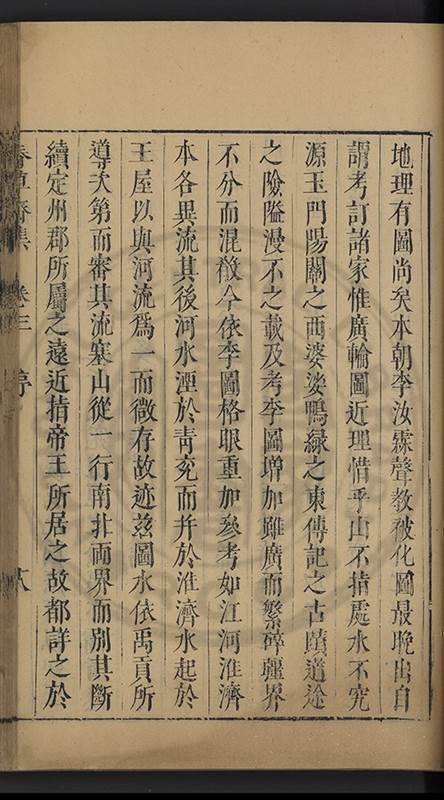 地理有圖尚矣本朝李汝霖聲教被化圖最晚出自
謂考訂諸家惟廣輪圖近理惜乎山不指處水不究
源玉門陽關之西婆娑鴨綠之東傳記之古蹟道途
之險隘漫不之載及考李圖增加雖廣而繁碎疆界
不分而混殽今依李圖格眼重加參考如江河淮濟
本各異流其後河水湮於青兗而并於淮濟水起於
王屋以與河流爲一而微存故迹茲圖水依禹貢所
導次第而審其流塞山從一行南北兩界而別其斷
續定州郡所屬之遠近指帝王所居之故都詳之於
卷三 序 八